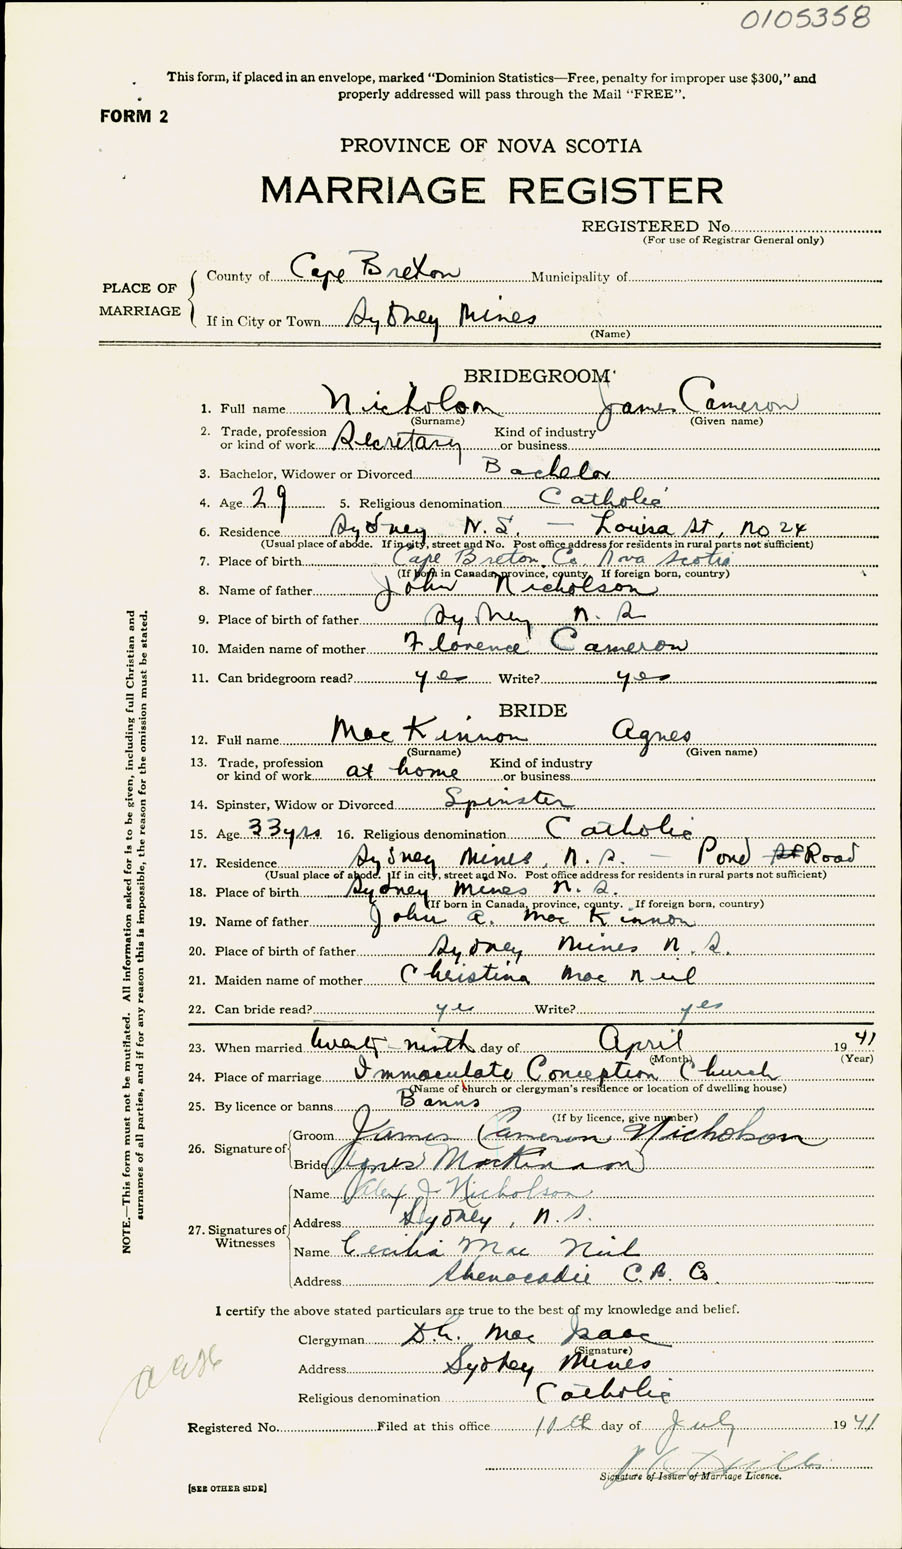 0105358
This form, if placed in an envelope, marked "Dominion Statistics—Free, penalty for improper use $300," and
properly addressed will pass through the Mail "FREE".
FORM 2
PROVINCE OF NOVA SCOTIA
MARRIAGE REGISTER
REGISTERED No
(For use of Registrar General only)
PLACE OF MARRIAGE
County of Cape Breton Municipality of
If in City or Town Sydney Mines
(Name)
BRIDEGROOM
1. Full name Nicholson James Cameron
(Surname) (Given name)
2. Trade, profession or kind of work Secretary Kind of industry or business
3. Bachelor, Widower or Divorced Bachelor
4. Age 29 5. Religious denomination Catholic
6. Residence Sydney N.S. — Louisa St, No 24
(Usual place of abode. If in city, street and No. Post office address for residents in rural parts not sufficient)
7. Place of birth Cape Breton Co. Nova Scotia
(If born in Canada, province, county. If foreign born, country)
8. Name of father John Nicholson
9. Place of birth of father Sydney N. S
10. Maiden name of mother Florence Cameron
11. Can bridegroom read? yes Write? yes
BRIDE
12. Full name MacKinnon Agnes
(Surname) (Given name)
13. Trade, profession or kind of work at home Kind of industry or business
14. Spinster, Widow or Divorced Spinster
15. Age 33yrs 16. Religious denomination Catholic
17. Residence Sydney Mines, N.S. — Pond St Road
(Usual place of abode. If in city, street and No. Post office address for residents in rural parts not sufficient)
18. Place of birth Sydney Mines N. S.
(If born in Canada, province, county. If foreign born, country)
19. Name of father John A. MacKinnon
20. Place of birth of father Sydney Mines N. S.
21. Maiden name of mother Christina Mac Neil
22. Can bride read? yes Write? yes
23. When married twenty-ninth day of April 1941
(Month) (Year)
24. Place of marriage Immaculate Conception Church
(Name of church or clergyman's residence or location of dwelling house)
25. By licence or banns Banns
(If by licence, give number)
26. Signature of
Groom James Cameron Nicholson
Bride Agnes MacKinnon
27. Signatures of Witnesses
Name Alex J Nicholson
Address Sydney, N.S.
Name Cecilia Mac Neil
Address Shenacadie C.B. Co.
I certify the above stated particulars are true to the best of my knowledge and belief.
Clergyman Mac Isaac
(Signature)
Address Sydney Mines
Religious denomination Catholic
Registered No. Filed at this office 10th day of July 1941
Signature of Issuer of Marriage Licence.
[SEE OTHER SIDE]
NOTE.—This form must not be mutilated. All information asked for is to be given, including full Christian and
surnames of all parties, and if for any reason this is impossible, the reason for the omission must be stated.